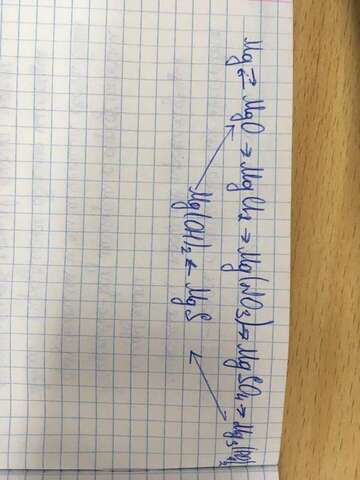 Mg ⇄ MgO → MgCl₂ → Mg(NO₃)₂ → MgSO₄ → Mg₃(PO₄)₂
Mg(OH)₂ ← MgS